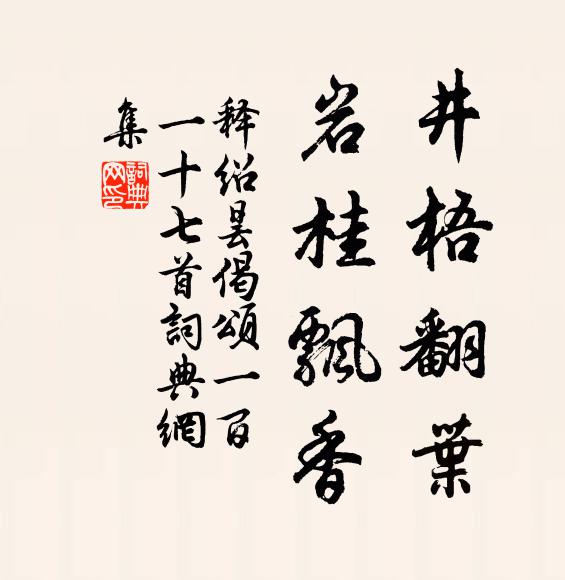 井梧翻葉
岩桂飄香
释紹昙偈頌一百
一十七首詞典網
集
詞典
网印